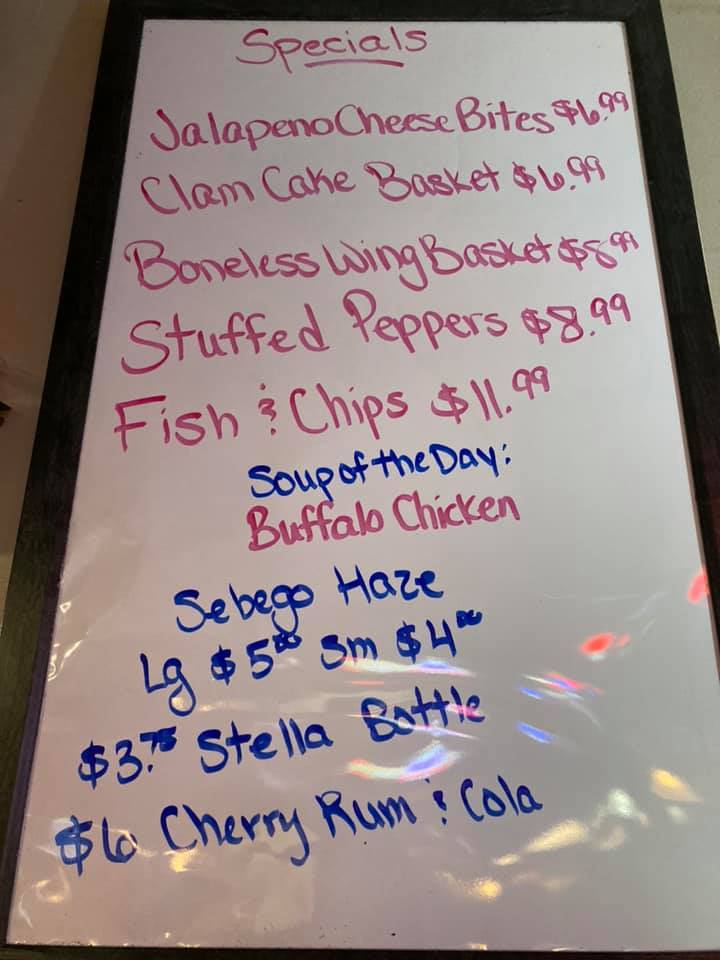 Specials
Jalapeno Cheese Bites $6.99
Clam Cake Basket $6.99
Boneless Wing Basket $8.99
Stuffed Peppers $8.99
Fish & Chips $11.99
Soup of the Day:
Buffalo Chicken
Sebego Haze
Lg $5.00 Sm $4.00
$3.75 Stella Bottle
$6 Cherry Rum & Cola